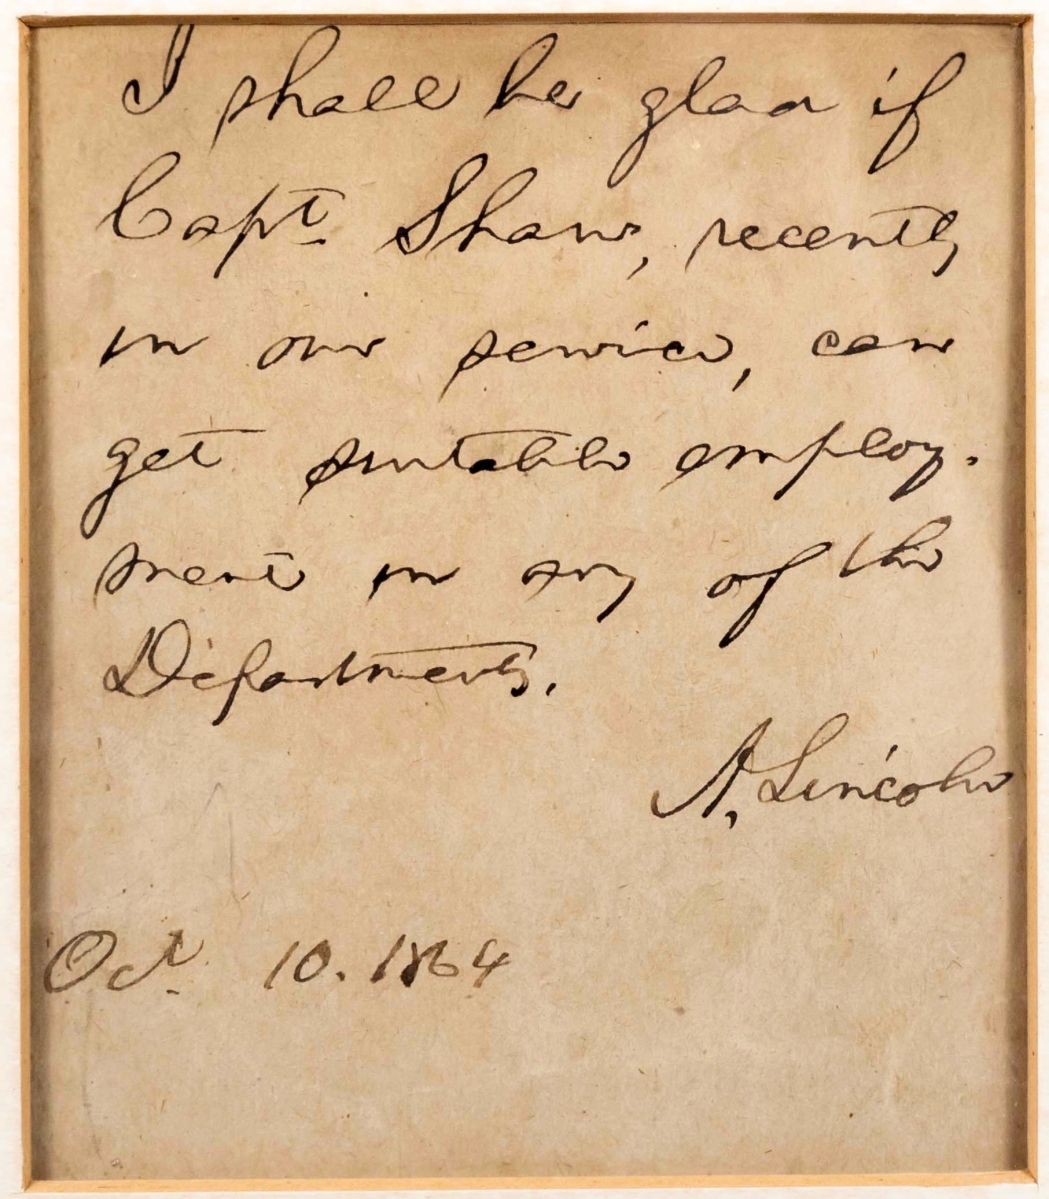 I shall be glad if
Capt. Shaw, recently
in our service, can
get suitable employ-
ment in any of the
Departments.
A. Lincoln
Oct. 10. 1864